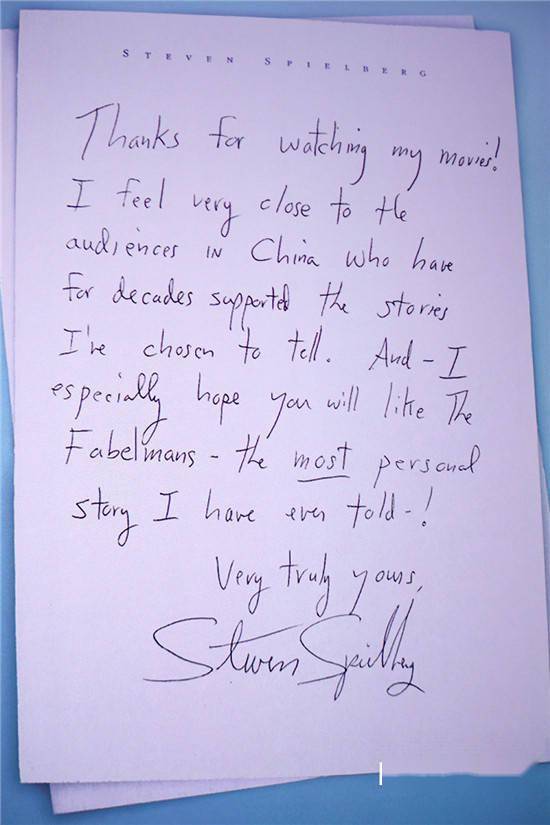 STEVEN SPIELBERG
Thanks for watching my movies!
I feel very close to the
audiences IN China who have
for decades supported the stories
I've chosen to tell. And - I
especially hope you will like The
Fabelmans - the most personal
story I have ever told - !
Very truly yours,
Steven Spielberg